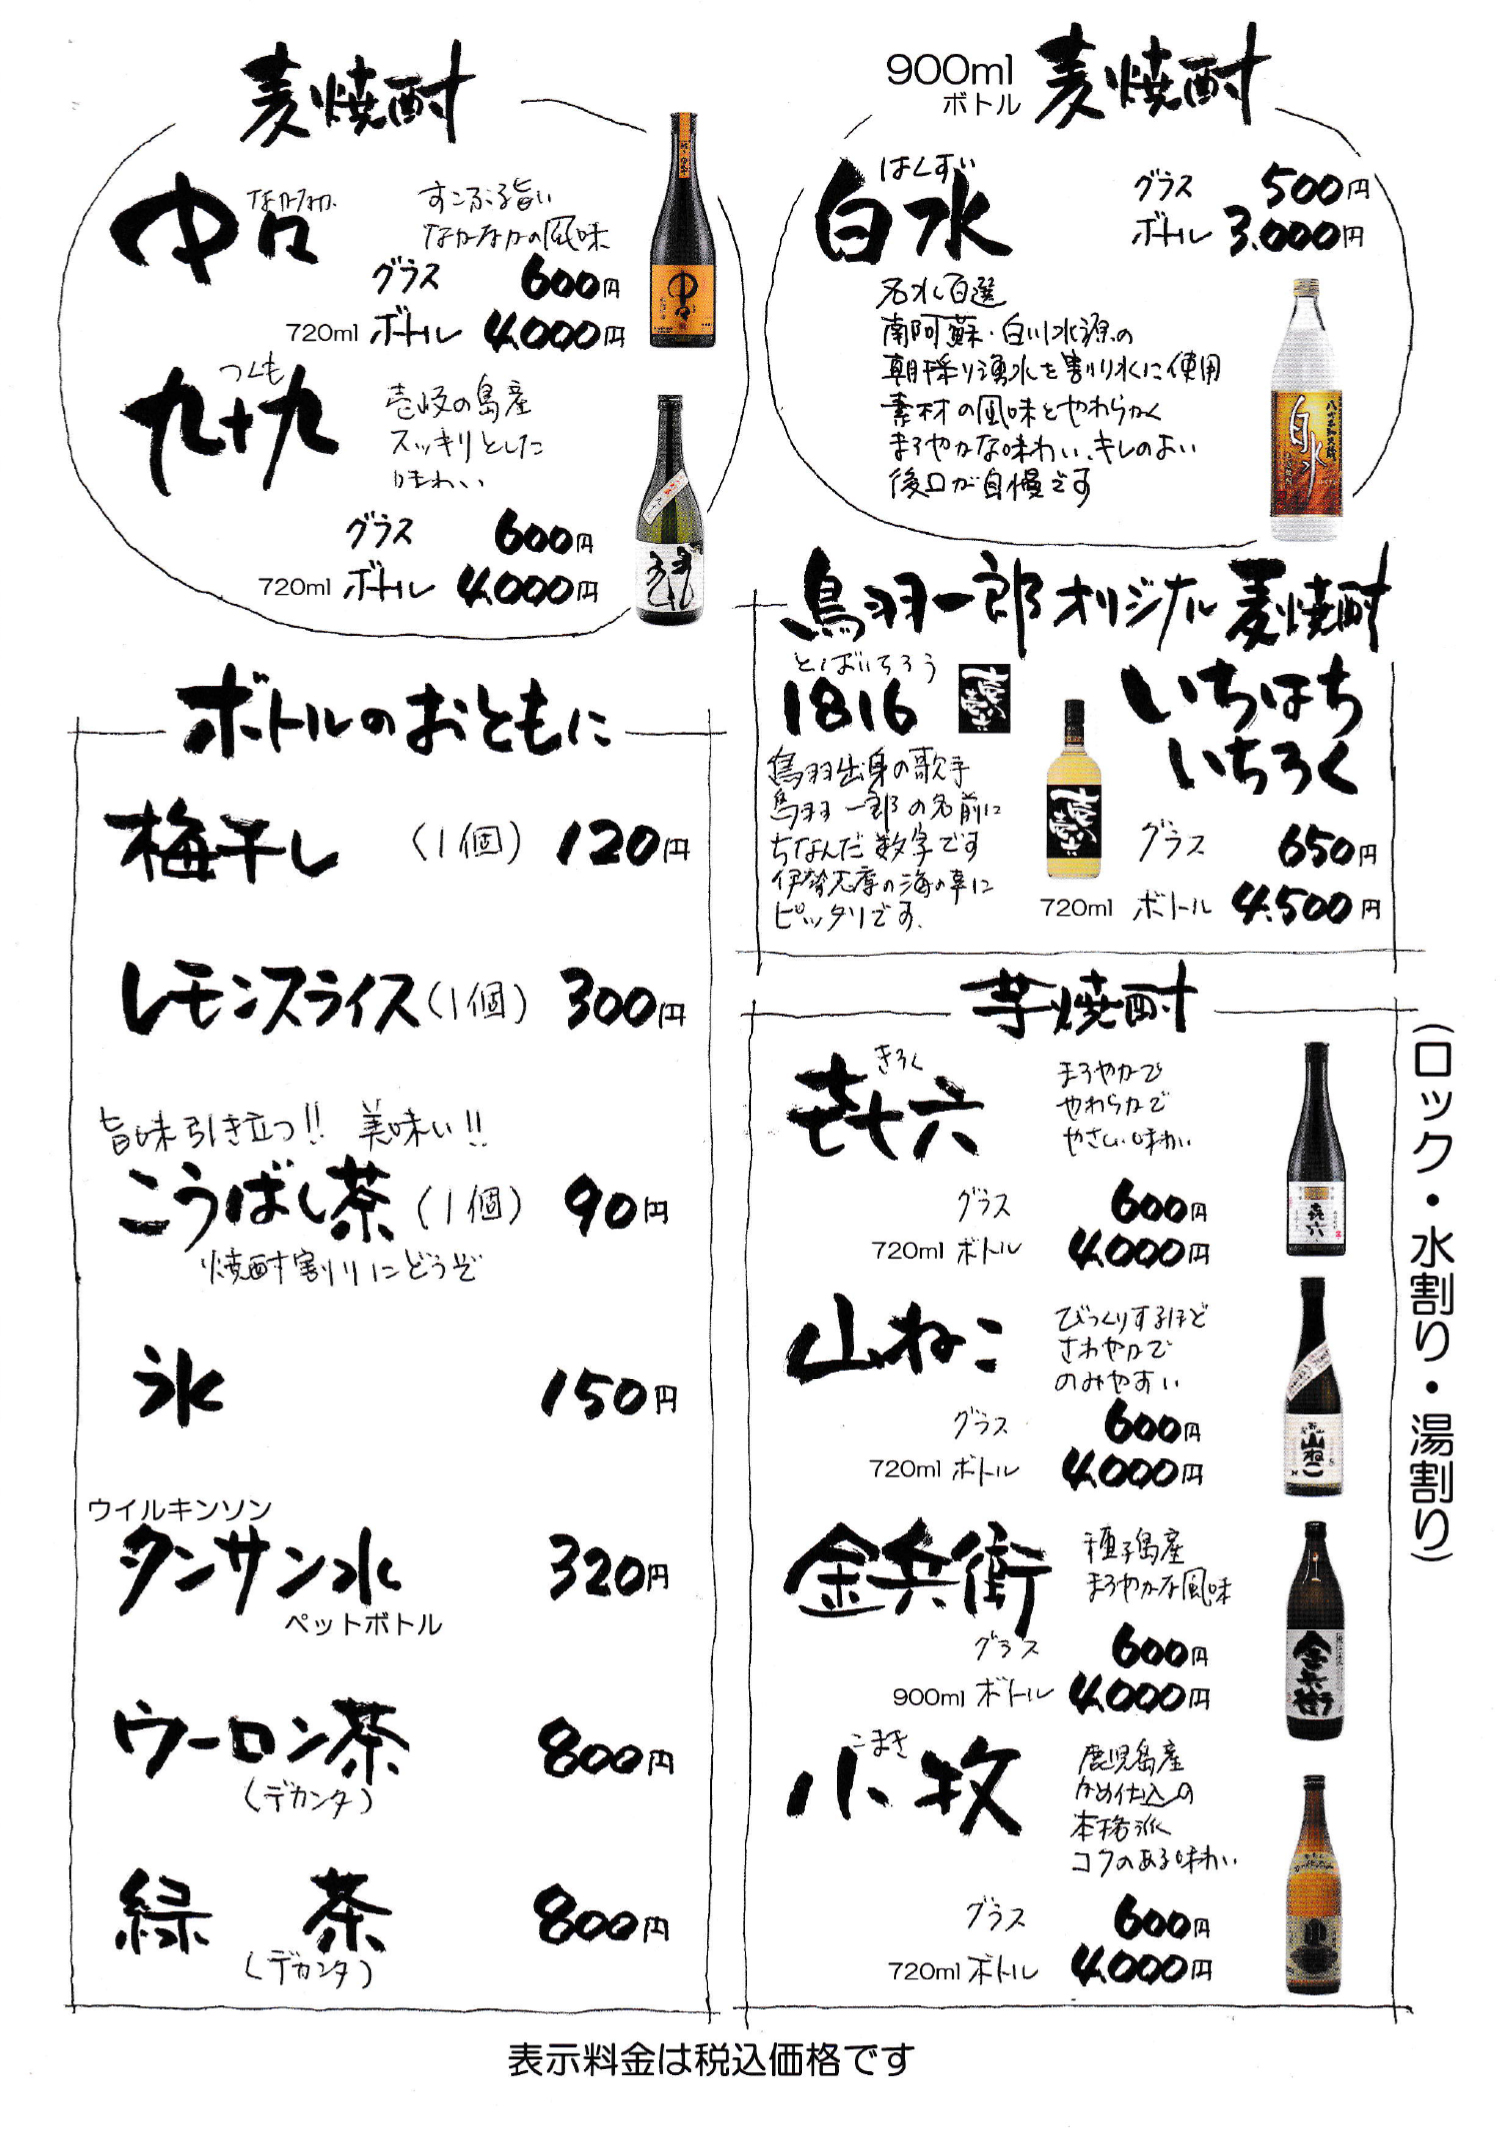 麦焼酎
なかなか
中々
すこぶる旨い
なかなかの風味
グラス 600円
720ml ボトル 4,000円
つくも
九十九
壱岐の島産
スッキリとした
味わい
グラス 600円
720ml ボトル 4,000円
900ml ボトル 麦焼酎
はくすい
白水
グラス 500円
ボトル 3,000円
名水百選
南阿蘇・白川水源の
朝採り湧水を割り水に使用
素材の風味とやわらかく
まろやかな味わい、キレのよい
後口が自慢です
八代不知火蔵
白水
鳥羽一郎オリジナル麦焼酎
とばいちろう
1816
いちはち
いちろく
鳥羽出身の歌手
鳥羽一郎の名前に
ちなんだ数字です
伊勢志摩の海の幸に
ピッタリです。
グラス 650円
720ml ボトル 4,500円
ボトルのおともに
梅干し (1個) 120円
レモンスライス (1個) 300円
旨味引き立つ!! 美味い!!
こうばし茶 (1個) 90円
焼酎割りにどうぞ
氷 150円
ウイルキンソン
タンサン水 320円
ペットボトル
ウーロン茶 800円
(デカンタ)
緑茶 800円
(デカンタ)
芋焼酎
(ロック・水割り・湯割り)
きろく
㐂六
まろやかで
やわらかで
やさしい味わい
グラス 600円
720ml ボトル 4,000円
喜六
山ねこ
びっくりするほど
さわやかで
のみやすい
グラス 600円
720ml ボトル 4,000円
山ねこ
金兵衛
種子島産
まろやかな風味
グラス 600円
900ml ボトル 4,000円
金兵衛
こまき
小牧
鹿児島産
かめ仕込の
本格派
コクのある味わい
グラス 600円
720ml ボトル 4,000円
表示料金は税込価格です